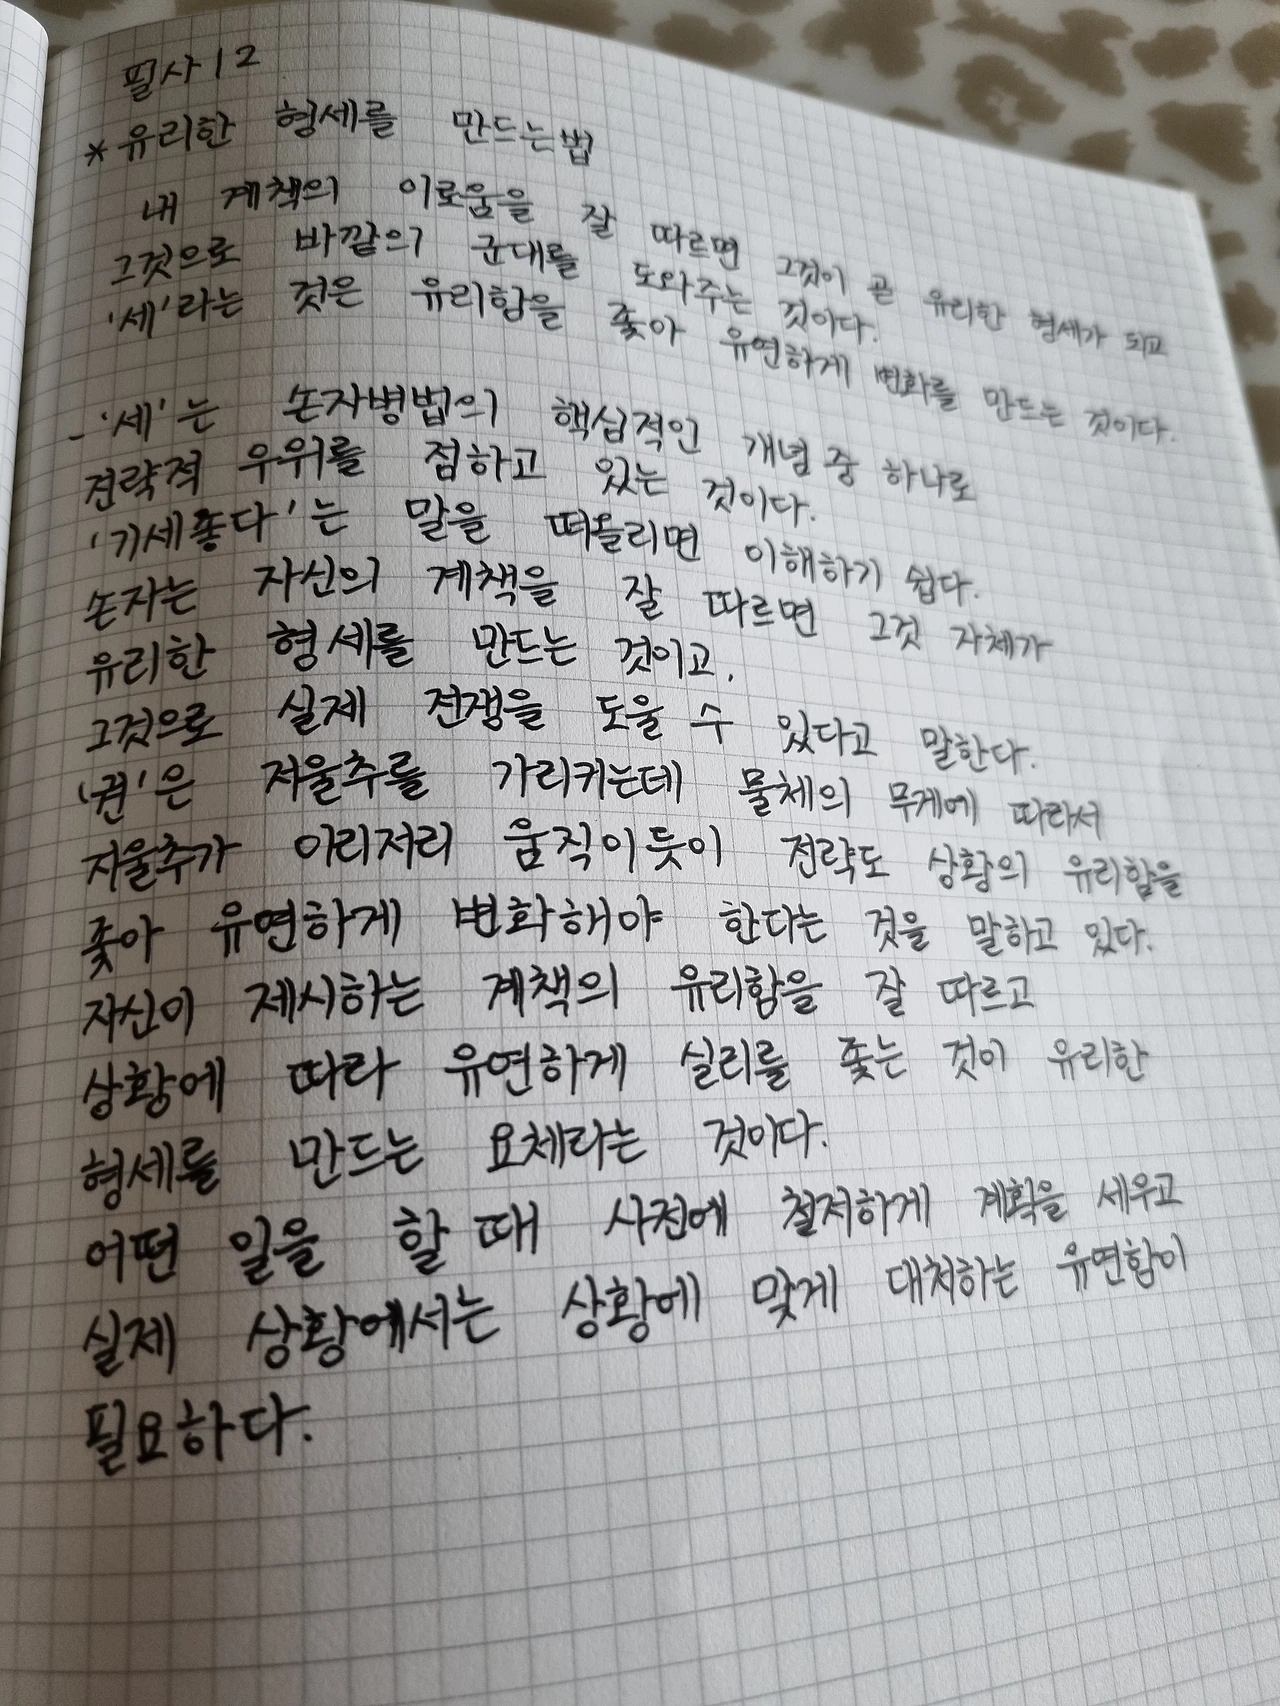 필사12
*유리한 형세를 만드는법
내 계책의 이로움을 잘 따르면 그것이 곧 유리한 형세가 되고
그것으로 바깥의 군대를 도와주는 것이다.
'세'라는 것은 유리함을 좇아 유연하게 변화를 만드는 것이다.
-'세'는 손자병법의 핵심적인 개념 중 하나로
전략적 우위를 점하고 있는 것이다.
'기세좋다'는 말을 떠올리면 이해하기 쉽다.
손자는 자신의 계책을 잘 따르면 그것 자체가
유리한 형세를 만드는 것이고,
그것으로 실제 전쟁을 도울 수 있다고 말한다.
'권'은 저울추를 가리키는데 물체의 무게에 따라서
저울추가 이리저리 움직이듯이 전략도 상황의 유리함을
좇아 유연하게 변화해야 한다는 것을 말하고 있다.
자신이 제시하는 계책의 유리함을 잘 따르고
상황에 따라 유연하게 실리를 좇는 것이 유리한
형세를 만드는 요체라는 것이다.
어떤 일을 할 때 사전에 철저하게 계획을 세우고
실제 상황에서는 상황에 맞게 대처하는 유연함이
필요하다.